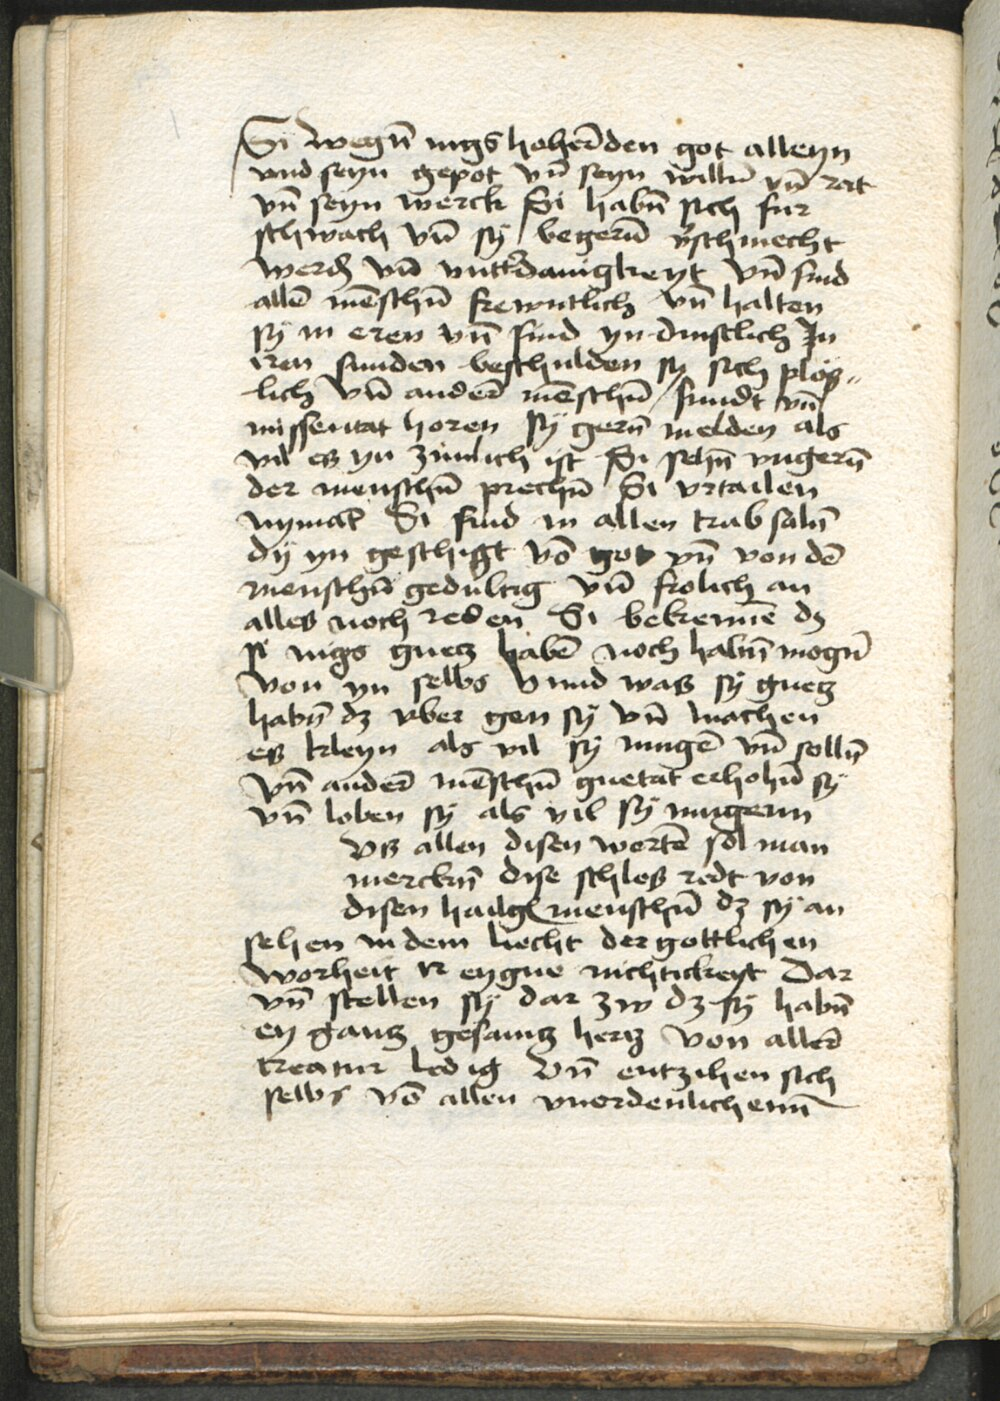 Si wegn̄ nigs hoher̄ den got alleyn
vnd seyn gepot vn̄ seyn willn̄ vn̄ rat
vn̄ seyn werck Si habn̄ sich fur
schwach vn̄ sÿ begern̄ v̉schmecht
werdn̄ vn̄ vntt̉danigkeyt vn̄ sind
allē mēschn̄ frewntlich vn̄ halten
sÿ in eren vn̄ sind yn dinstlich In
iren sunden beschulden sy sich plos„
lich vn̄ ander̄ mēschn̄ sundt vn̄
missentat horen sÿ gern̄ melden als
vil es yn zimlich ist Si sehn̄ vngern̄
der menschn̄ prechn̄ Si vrtailen
nymat Si sind in allen trubsaln̄
dÿ yn geschigt vō got vn̄ von dē
menschn̄ gedultig vn̄ frolich an
alles noch reden Si bekennē dz
si nigs guetz habē noch habn̄ mogn̄
von yn selbs Vnnd was sÿ guetz
habn̄ dz vber gen sÿ vn̄ machen
es kleyn als vil sÿ mugē vn̄ solln̄
vn̄ ander̄ mēschn̄ guetat erhohn̄ sÿ
vn̄ loben sÿ als vil sÿ mugenn
Vs allen disen wortē sol man
merckn̄ dise schlos redt von
disen hailgn̄ menschn̄ dz sÿ an
sehen in dem liecht der gottlichen
worheit ir eygne nichtickeyt Dar
vn̄ stellen sÿ dar zw dz sÿ habn̄
en gantz gesamtz hertz von aller̄
creatur ledig Vn̄ entzihen sich
selbs vō allen vnordenlichenn̄